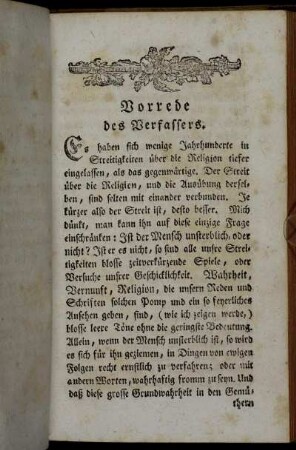 Vorrede
des Verfassers.
Es haben sich wenige Jahrhunderte in
Streitigkeiten über die Religion tiefer
eingelassen, als das gegenwärtige. Der Streit
über die Religion, und die Ausübung dersel-
ben, sind selten mit einander verbunden. Je
kürzer also der Streit ist, desto besser. Mich
dünkt, man kann ihn auf diese einzige Frage
einschränken: Ist der Mensch unsterblich, oder
nicht? Ist er es nicht, so sind alle unsre Strei-
tigkeiten blosse zeitverkürzende Spiele, oder
Versuche unsrer Geschicklichkeit. Wahrheit,
Vernunft, Religion, die unsern Reden und
Schriften solchen Pomp und ein so feyerliches
Ansehen geben, sind, (wie ich zeigen werde,)
blosse leere Töne ohne die geringste Bedeutung.
Allein, wenn der Mensch unsterblich ist, so wird
es sich für ihn geziemen, in Dingen von ewigen
Folgen recht ernstlich zu verfahren; oder mit
andern Worten, wahrhaftig fromm zu seyn. Und
daß diese grosse Grundwahrheit in den Gemü-
thern